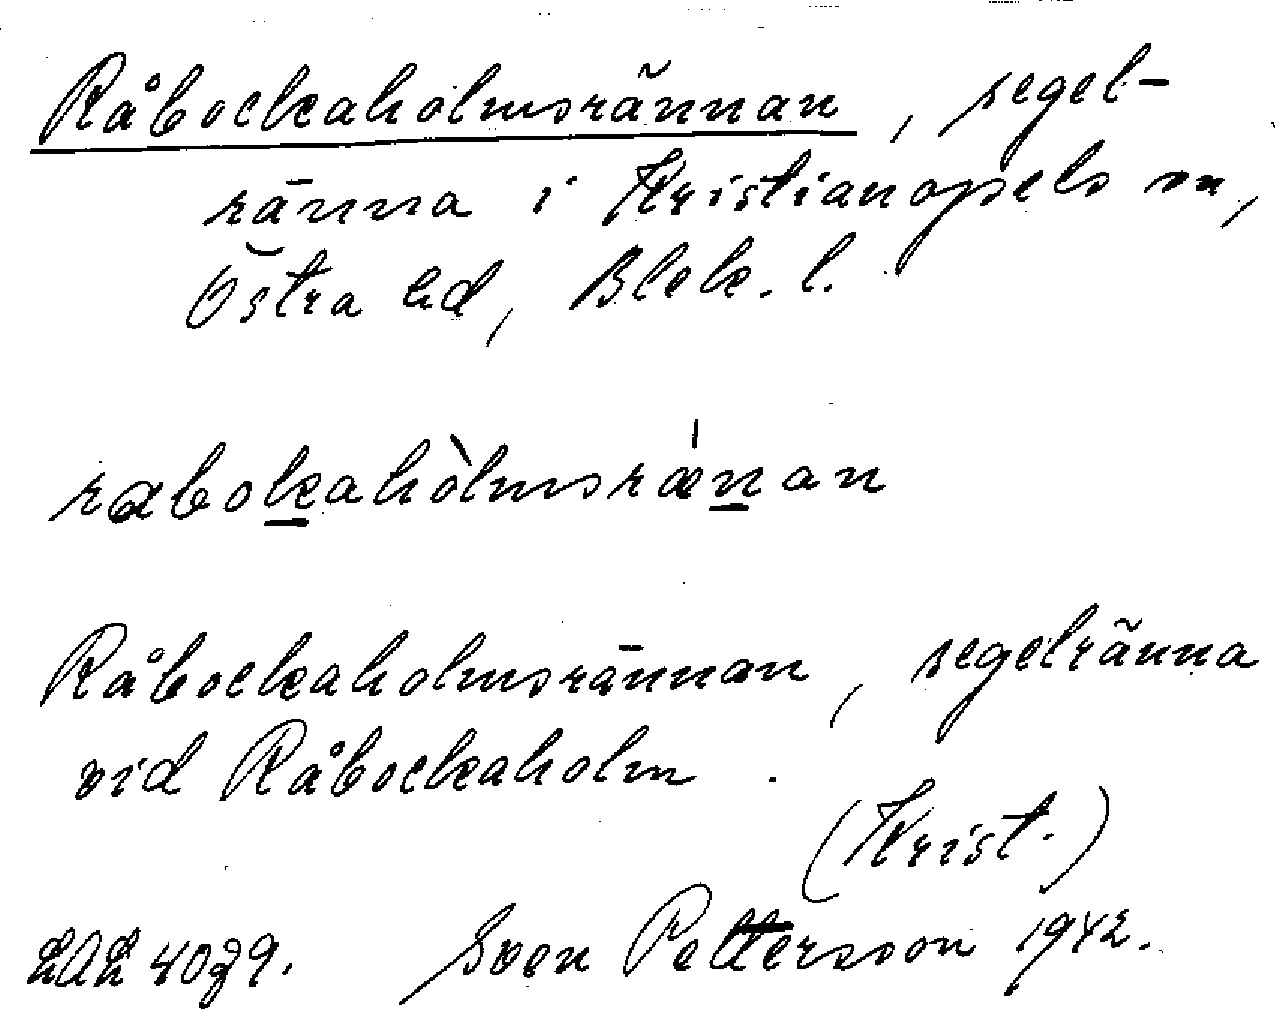 Råbockaholmsrännan, segel-
ränna i Kristianopels sn,
Östra hd, Blek. l.
rabokahòlmsrænan
Råbockaholmsrännan, segelränna
vid Råbockaholm.
(Krist.)
LAL Sven Pettersson 1942.